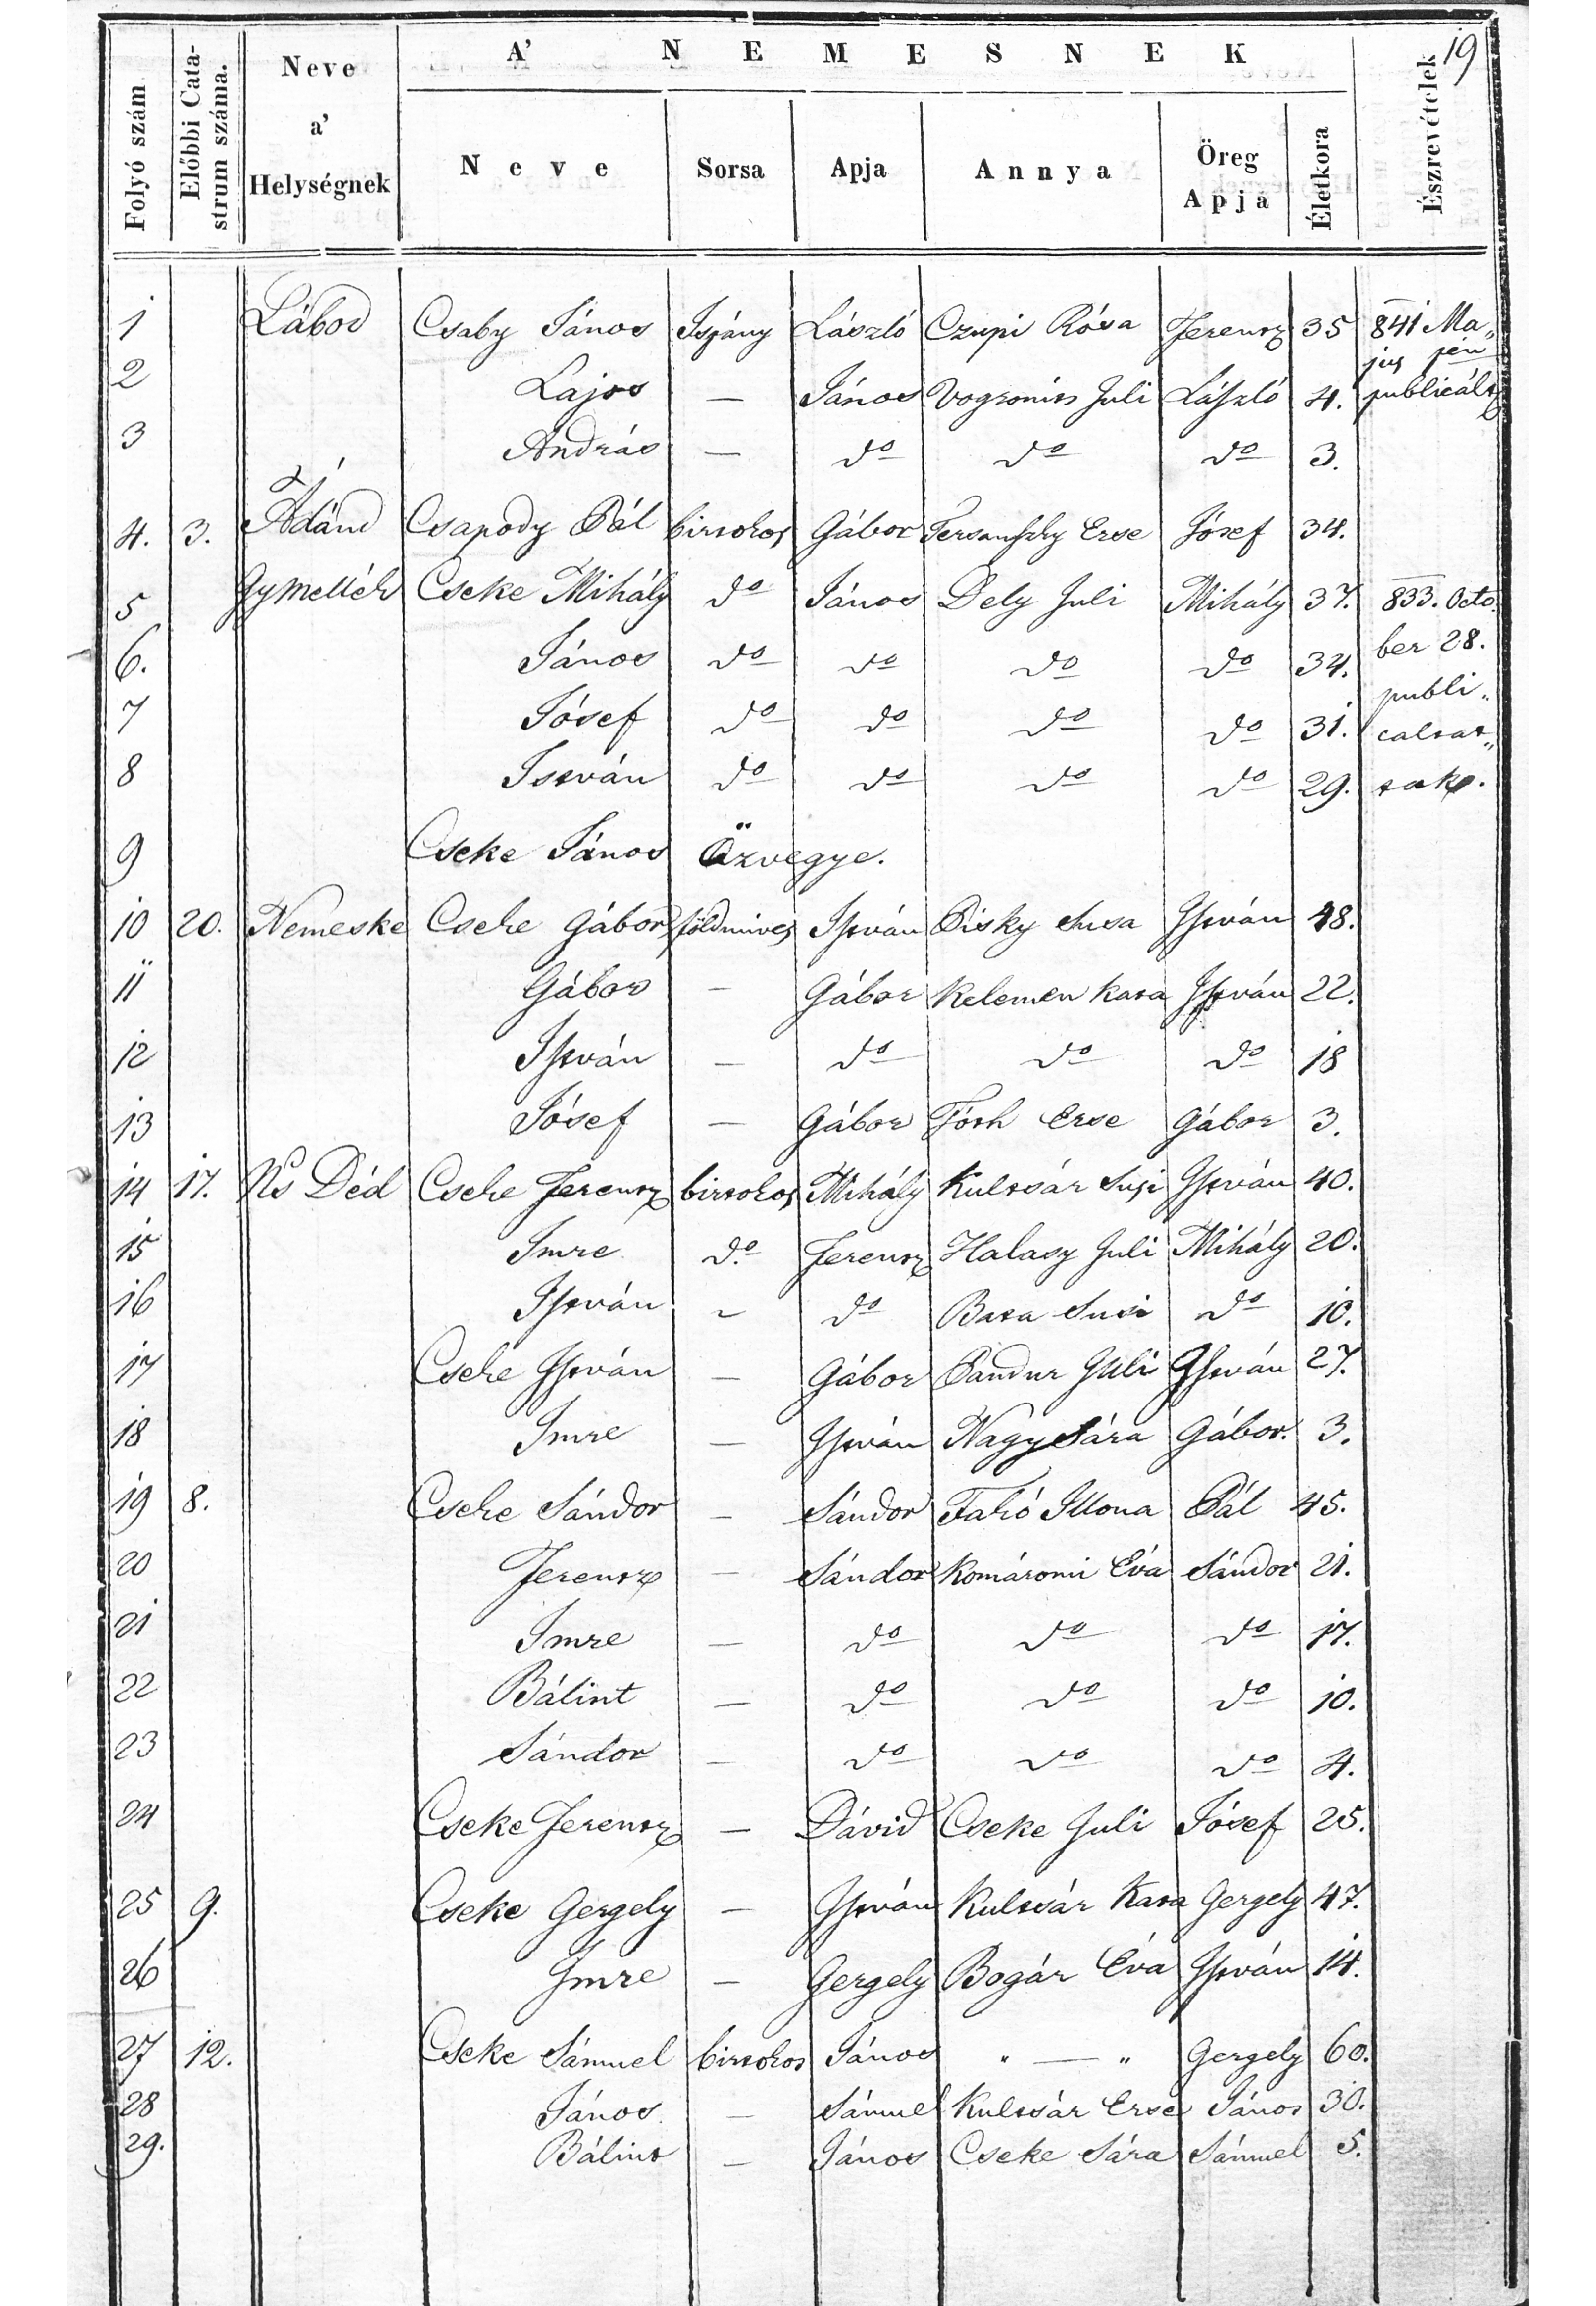 19
A' NEMESNEK
Folyó szám
Előbbi Catastrum száma.
Neve a' Helységnek
Neve
Sorsa
Apja
Annya
Öreg Apja
Életkora
Észrevételek
1 Lábod Csaby János Ispány László Czupi Rósa Ferencz 35 841 Ma„
jus jén
2 Lajos — János Vogronics Juli László 4. publicált
3 András — do do do 3.
4. 3. Ádánd Csapody Pál birtokos Gábor Erse Jósef 34.
5 Gymellék Cseke Mihály do János Dely Juli Mihály 37. 833. Octo
6. János do do do do 34. ber 28.
publi„
7 Jósef do do do do 31. caltat„
8 István do do do do 29. tak.
9 Cseke János Özvegye.
10 20. Nemeske Cseke Gábor földmives István Pisky Susa István 48.
11 Gábor — Gábor Kelemen Kata István 22.
12 István — do do do 18
13 Jósef — Gábor Tóth Erse Gábor 3.
14 17. Ns Déd Cseke Ferencz birtokos Mihály Kultsár Susi István 40.
15 Imre do. Ferencz Halasy Juli Mihály 20.
16 István ~ do Bata Susi do 10.
17 Cseke István — Gábor Pandur Juli István 27.
18 Imre — István Nagy Sára Gábor. 3.
19 8. Cseke Sándor — Sándor Fakó Illona Pál 45.
20 Ferencz — Sándor Komáromi Éva Sándor 21.
21 Imre — do do do 17.
22 Bálint — do do do 10.
23 Sándor — do do do 4.
24 Cseke Ferencz — Dávid Cseke Juli Jósef 25.
25 9. Cseke Gergely — István Kultsár Kata Gergely 47.
26 Imre — Gergely Bogár Éva István 14.
27 12. Cseke Sámuel birtokos János " — " Gergely 60.
28 János — Sámuel Kultsár Erse János 30.
29. Bálint — János Cseke Sára Sámuel 5.